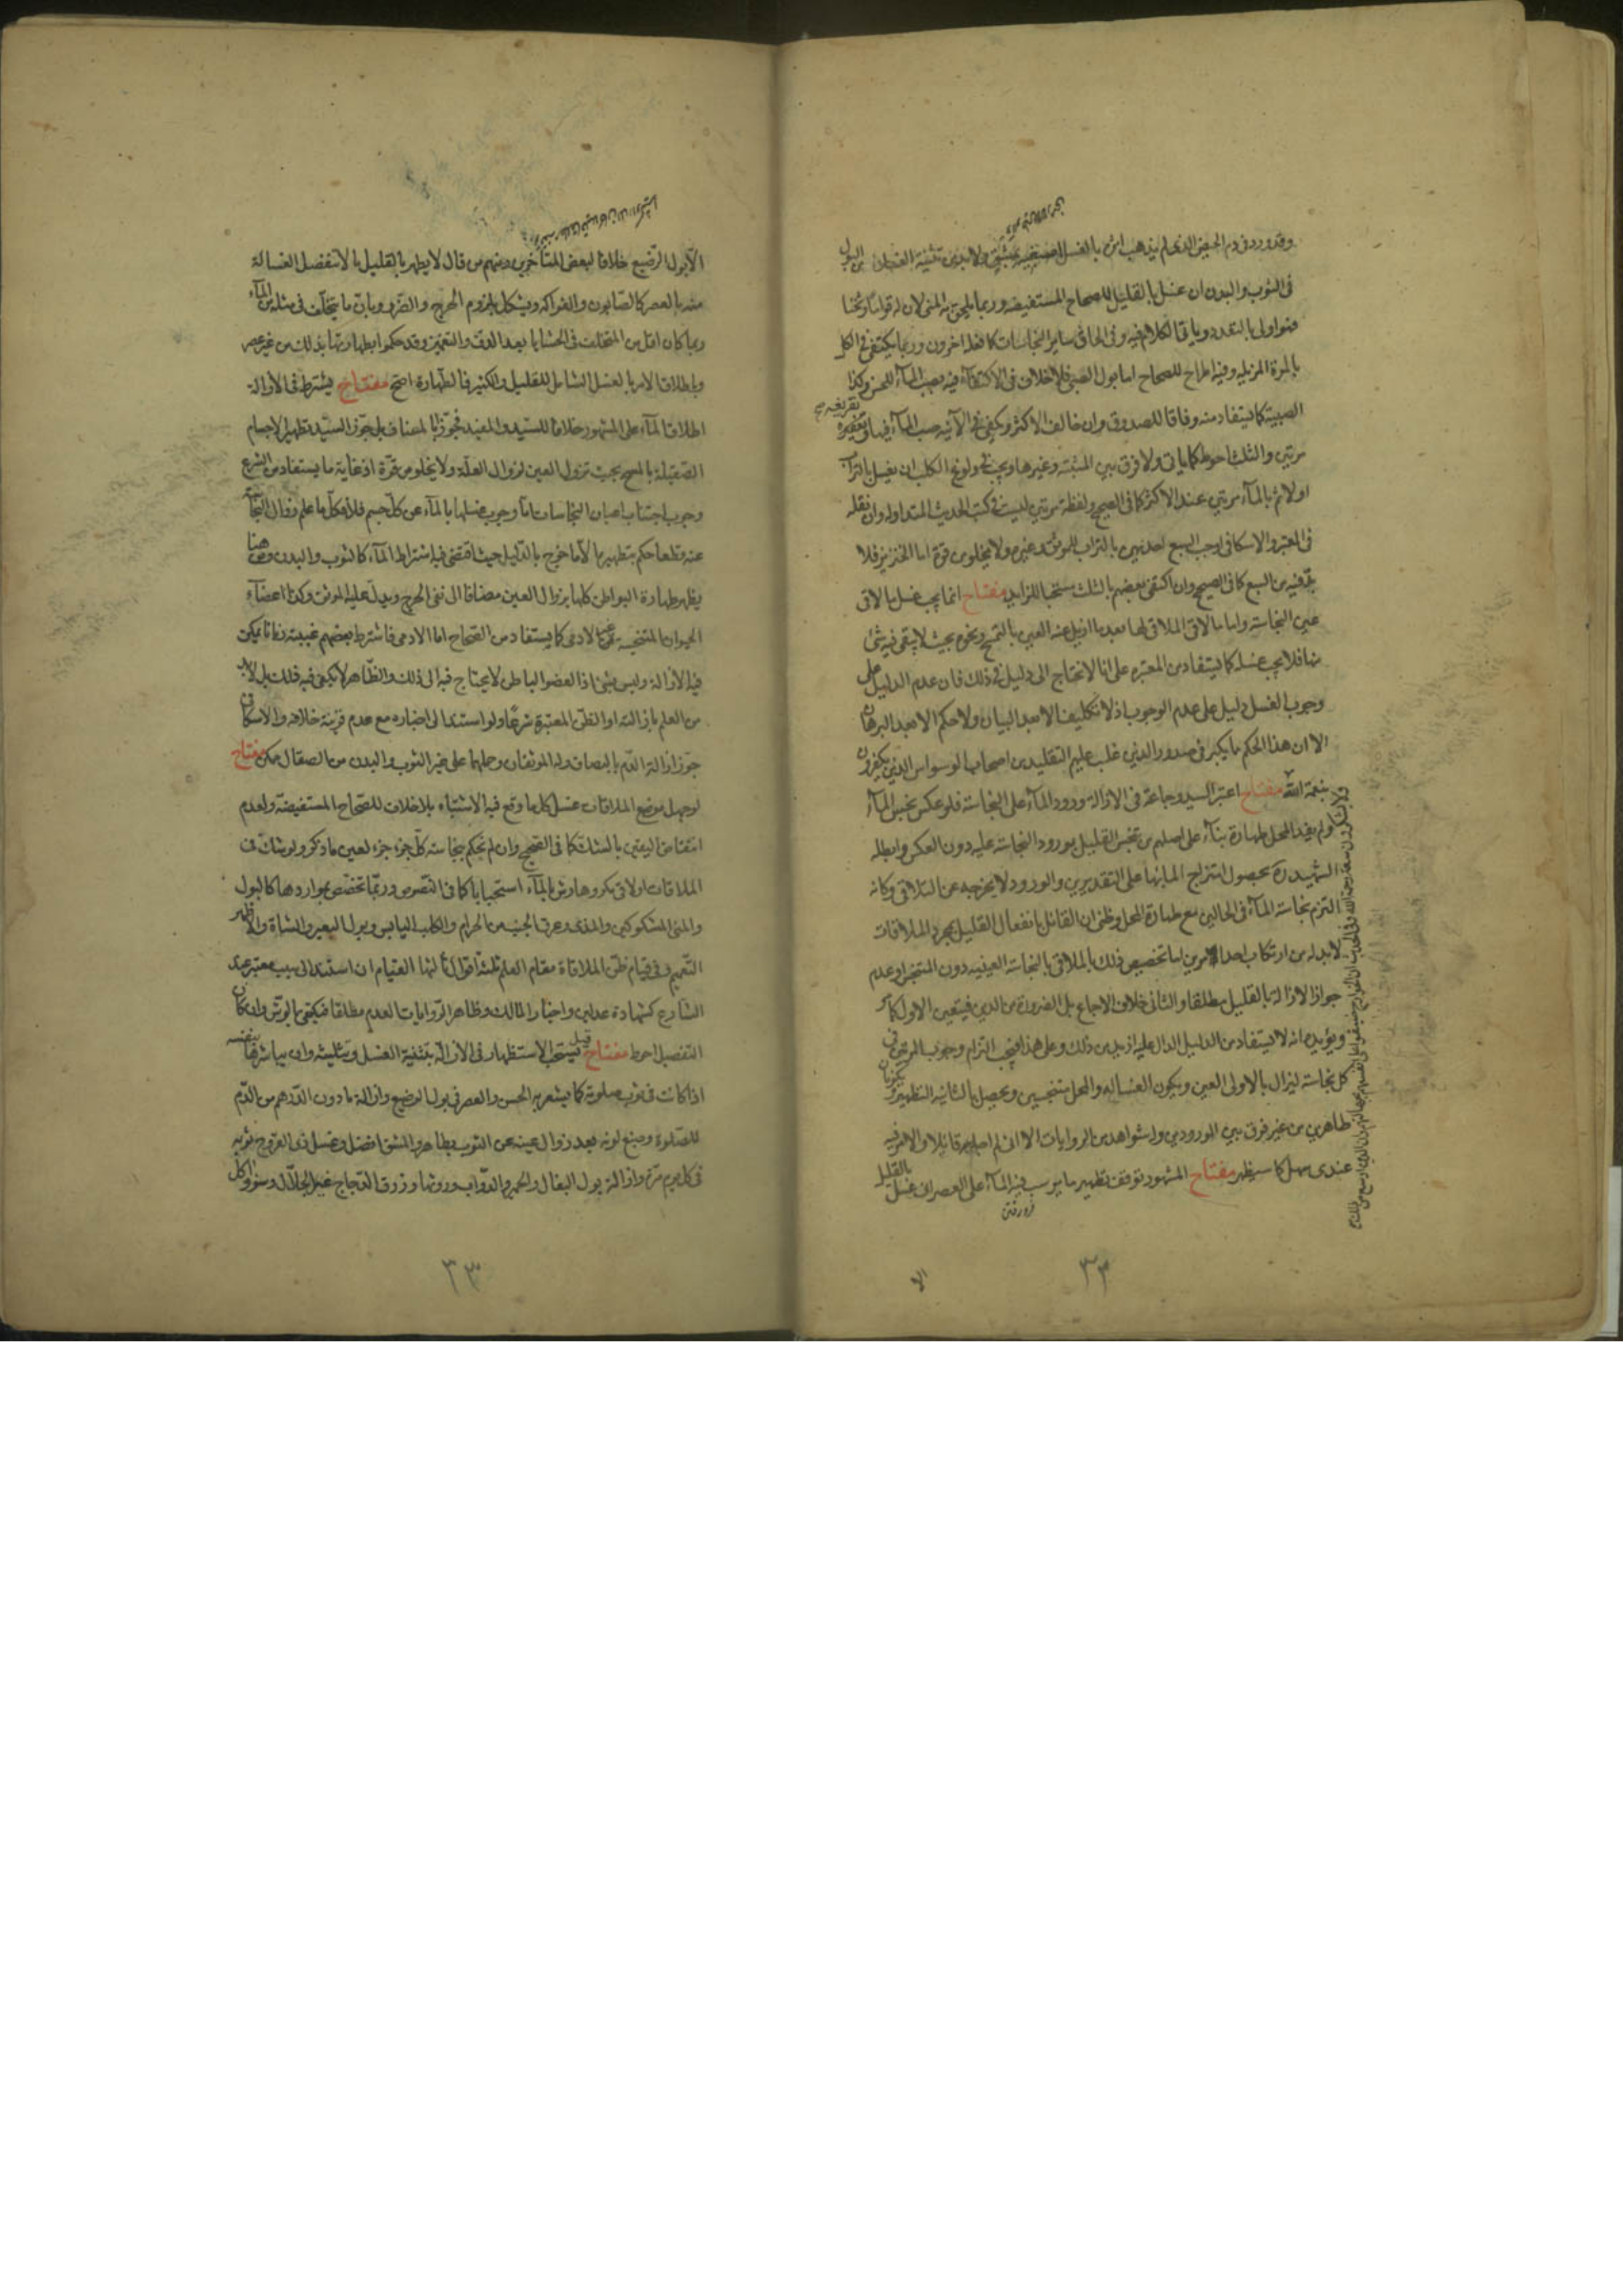 وقد ورد فی دم الحیض الذی لم یذهب اثره بالغسل صبغیه بمشق ولا بد من تثنیة الغسل من البول
فی الثوب والبدن ان غسل بالقلیل للصحاح المستفیضه وربما یلحق به المنی لان له قواما وثخنا
فهو اولی بالتعدد ویاتی الکلام فیه وفی الحاق سایر النجاسات کما فعله اخرون وربما یکتفی فی الکل
بالمرة المزیله وفیه اطراح للصحاح اما بول الصبی فلا خلاف فی الاکتفاء فیه بصب المآء للحسن وکذا
الصبیة کما یستفاد منه وفاقا للصدوق وان خالف الاکثر ویکفی فی الآنیه صب المآء فیها وتفریغه
مرتین والثلث احوط کما یاتی ولا فرق بین المثبته وغیرها ویجب فی ولوغ الکلب ان یغسل بالتراب
اولا ثم بالمآء مرتین عند الاکثر کما فی الصحیح ولفظة مرتین لیست فی کتب الحدیث المتداوله وان نقله
فی المعتبر والاسکافی اوجب السبع احدیهن بالتراب للموثق وغیره ولا یخلو من قوة اما الخنزیر فلا
بد فیه من السبع کما فی الصحیح وان اکتفی بعضهم بالثلث مستحبا للزاید مفتاح انما یجب غسل ما لاقی
عین النجاسة واما ما لاقی الملاقی لها بعد ما ازیل عنه العین بالتمسح ونحوه بحیث لا یبقی فیه شئ
منها فلا یجب غسله کما یستفاد من المعتبره علی انا لا نحتاج الی دلیل فی ذلک فان عدم الدلیل علی
وجوب الغسل دلیل علی عدم الوجوب اذ لا تکلیف الا بعد البیان ولا حکم الا بعد البرهان
الا ان هذا الحکم مما یکبر فی صدور الذین غلب علیهم التقلید من اصحاب الوسواس الذین یکفرون
بنعمة الله مفتاح اعتبر السید وجماعة فی الازالة ورود المآء علی النجاسة فلو عکس نجس المآء
ولم یفد المحل طهارة بنآء علی اصلهم من تنجس القلیل بورود النجاسة علیه دون العکس وابطله
الشهید ره بحصول امتزاج الماء بها علی التقدیرین والورود لا یخرجه عن التلاقی وکانه
التزم نجاسة المآء فی الحالین مع طهارة المحل وظنی ان القائل بانفعال القلیل بمجرد الملاقات
لا بد له من ارتکاب احد الامرین اما تخصیص ذلک بالملاقی بالنجاسة العینیه دون المتنجس او عدم
جواز الازالة بالقلیل مطلقا والثانی خلاف الاجماع بل الضرورة من الدین فیتعین الاول
ویؤیده انه لا یستفاد من الدلیل الدال علیه ازید من ذلک وعلی هذا فیجب التزام وجوب المرتین فی
کل نجاسة لیزال بالاولی العین ویکون الغساله والمحل متنجسین ویحصل بالثانیه التطهیر
طاهرین من غیر فرق بین الورودین وله شواهد من الروایات الا انی لم اجد به قائلا والامر فیه
عندی سهل کما سیظهر مفتاح المشهور توقف تطهیر ما یرسب فیه المآء علی العصر ان غسل بالقلیل
فرو رفتن
الا
٣٣
الا بول الرضیع خلافا لبعض المتأخرین ومنهم من قال لا یطهر بالقلیل ما لا تنفصل الغسالة
منه بالعصر کالصابون والفواکه ویشکل بلزوم الحرج والضرر وبان ما یتخلف فی مثله من المآء
ربما کان اقل من المتخلف فی الحشایا بعد الدق والتغمیز وقد حکموا بطهارتها بذلک من غیر عصر
وباطلاق الامر بالغسل الشامل للقلیل والکثیر فالطهارة اصح مفتاح یشترط فی الازالة
اطلاق المآء علی المشهور خلافا للسید والمفید فجوزا بالمضاف بل جوز السید تطهیر الاجسام
الصقیلة بالمسح بحیث تزول العین لزوال العلة ولا یخلو من قوة اذ غایة ما یستفاد من الشرع
وجوب اجتناب اعیان النجاسات اما وجوب غسلها بالمآء عن کل جسم فلا فکل ما علم زوال النجاسة
عنه قطعا حکم بتطهیره الا ما خرج بالدلیل حیث اقتضی فیه اشتراط المآء کالثوب والبدن ومن هنا
یظهر طهارة البواطن کلها بزوال العین مضافا الی نفی الحرج ویدل علیه الموثق وکذا اعضآء
الحیوان المتنجسة غیر الادمی کما یستفاد من الصحاح اما الادمی فاشترط بعضهم غیبته زمانا یمکن
فیه الازالة ولیس بشئ اذ العضو الباطن لا یحتاج فیه الی ذلک والظاهر لا یکفی فیه ذلک بل لا بد
من العلم بازالته او الظن المعتبر شرعا ولو استند الی اخباره مع عدم قرینة خلافه والاسکافی
جوز ازالة الدم بالبصاق وله الموثقان وحملهما علی غیر الثوب والبدن من الصقال ممکن مفتاح
لو جهل موضع الملاقات غسل کل ما وقع فیه الاشتباه بلا خلاف للصحاح المستفیضة ولعدم
انتقاض الیقین بالشک کما فی الصحیح وان لم نحکم بنجاسة کل جزء جزء لعین ما ذکر ولو شک فی
الملاقات اولا فی مکروها رش بالمآء استحبابا کما فی النصوص وربما تخصص بمواردها کالبول
والمنی المشکوکین والمذی وعرق الجنب من الحرام والکلب الیابس وبول البعیر والشاة والاظهر
التعمیم وفی قیام ظن الملاقاة مقام العلم ثلثة اقوال ثالثها القیام ان استند الی سبب معتبر عند
الشارع کشهادة عدلین واخبار المالک وظاهر الروایات العدم مطلقا فیکتفی بالرش وان کان
التفصیل احوط مفتاح قیل یستحب الاستظهار فی الازالة بتثنیة الغسل وتثلیثه وان یباشرها بنفسه
اذا کانت فی ثوب صلوته کما یشعر به الحسن والعصر فی بول الرضیع وازالة ما دون الدرهم من الدم
للصلوة وصبغ لونه بعد زوال عینه عن الثوب بطاهر والمشق افضل وغسل ذی القروح ثوبه
فی کل یوم مرة وازالة بول البغال والحمیر والدواب وروثها وذرق الدجاج غیر الجلال وسؤر آکل
٣٣